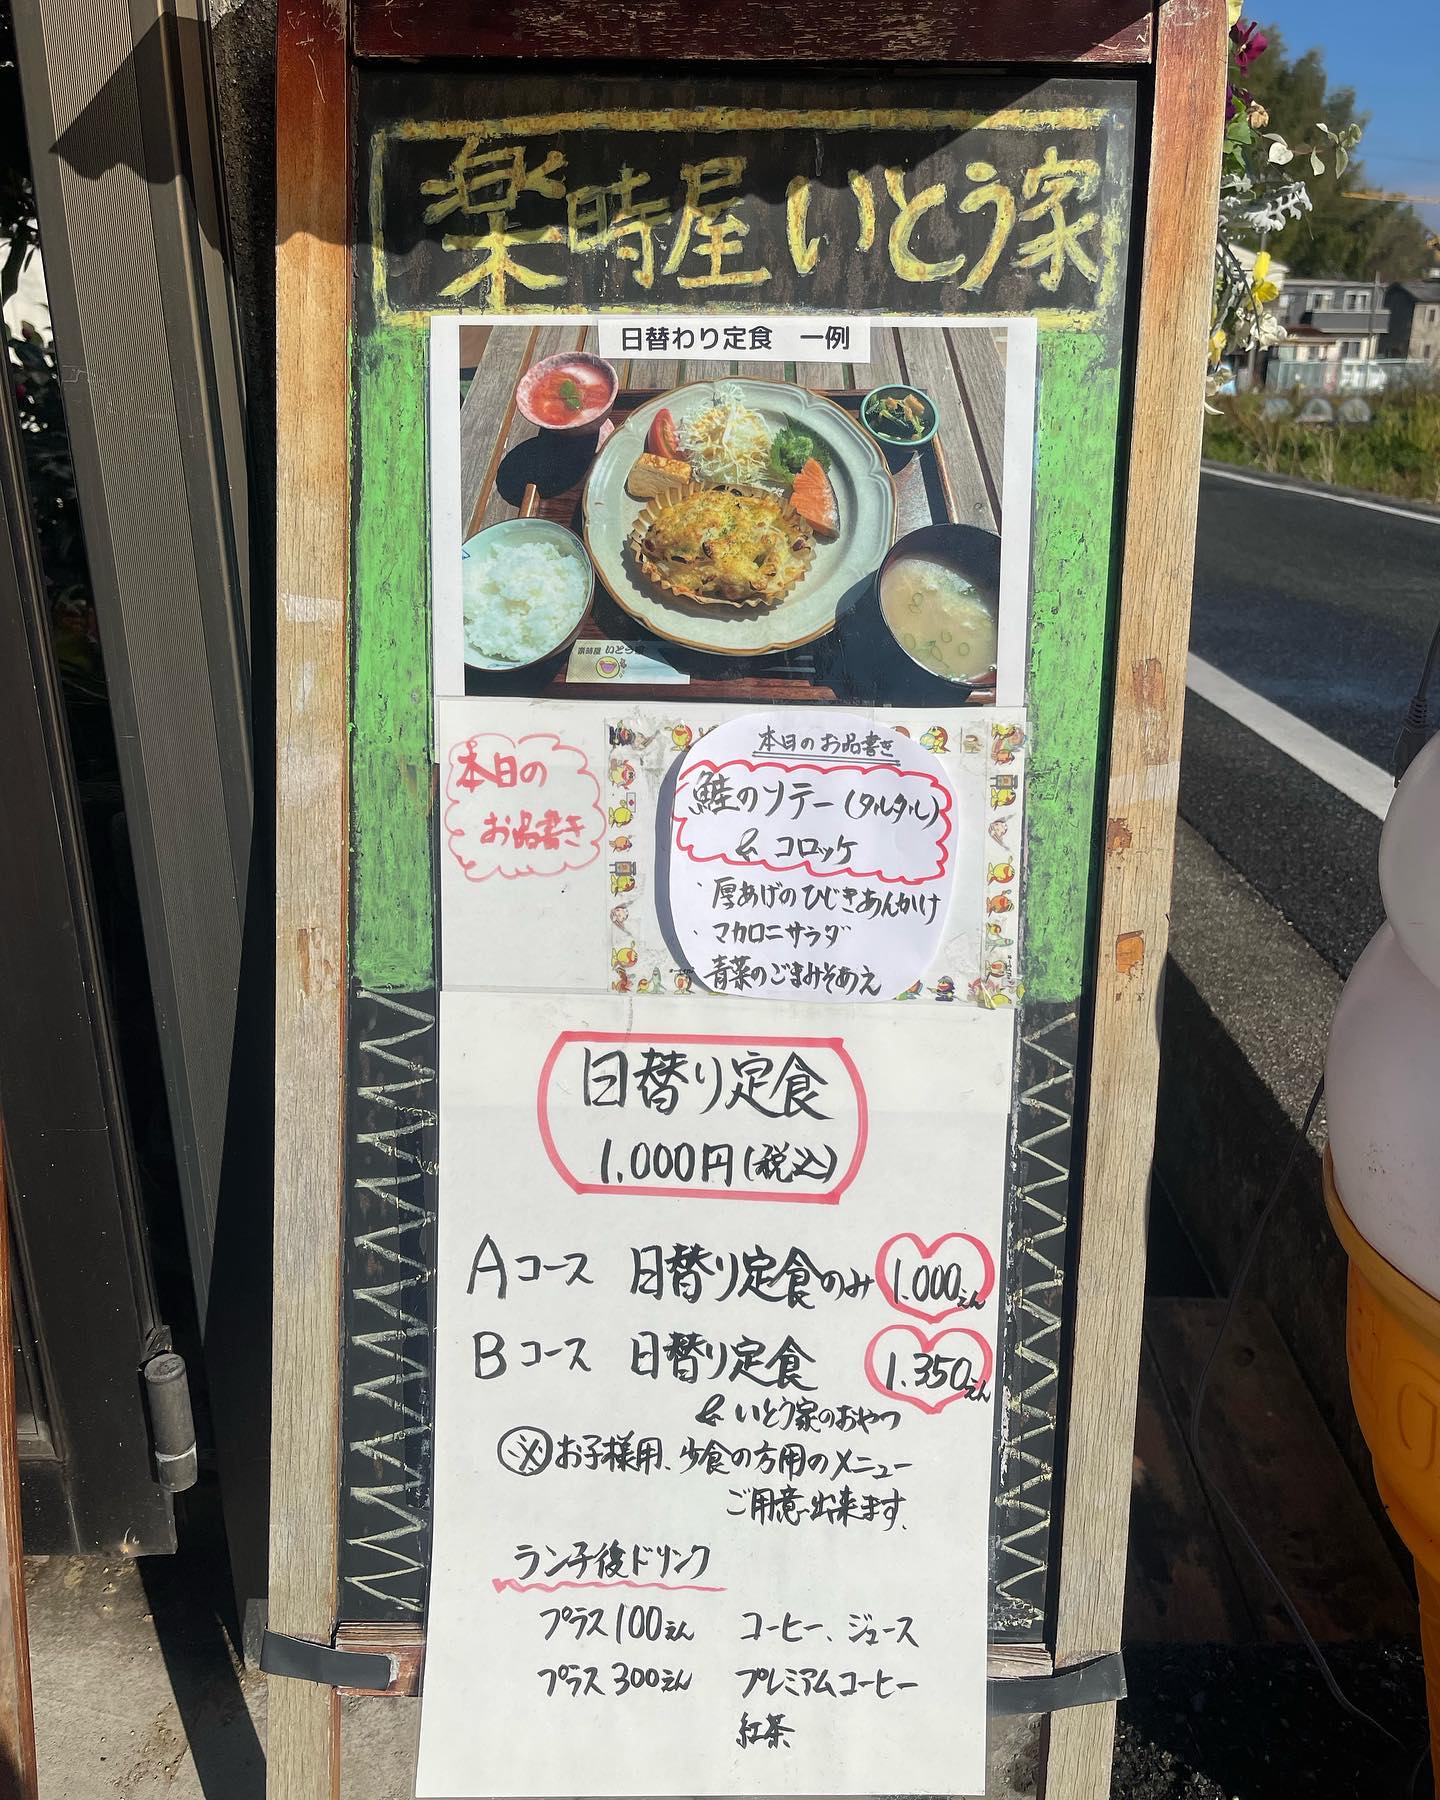 楽時屋 いとう家
日替わり定食 一例
楽時屋 いとう家
本日の
お品書き
本日のお品書き
鮭のソテー(タルタル)
& コロッケ
・厚あげのひじきあんかけ
・マカロニサラダ
青菜のごまみそあえ
日替り定食
1.000円(税込)
Aコース 日替り定食のみ 1.000えん
Bコース 日替り定食 1.350えん
& いとう家のおやつ
※お子様用、少食の方用のメニュー
ご用意出来ます。
ランチ後ドリンク
プラス100えん コーヒー、ジュース
プラス300えん プレミアムコーヒー
紅茶